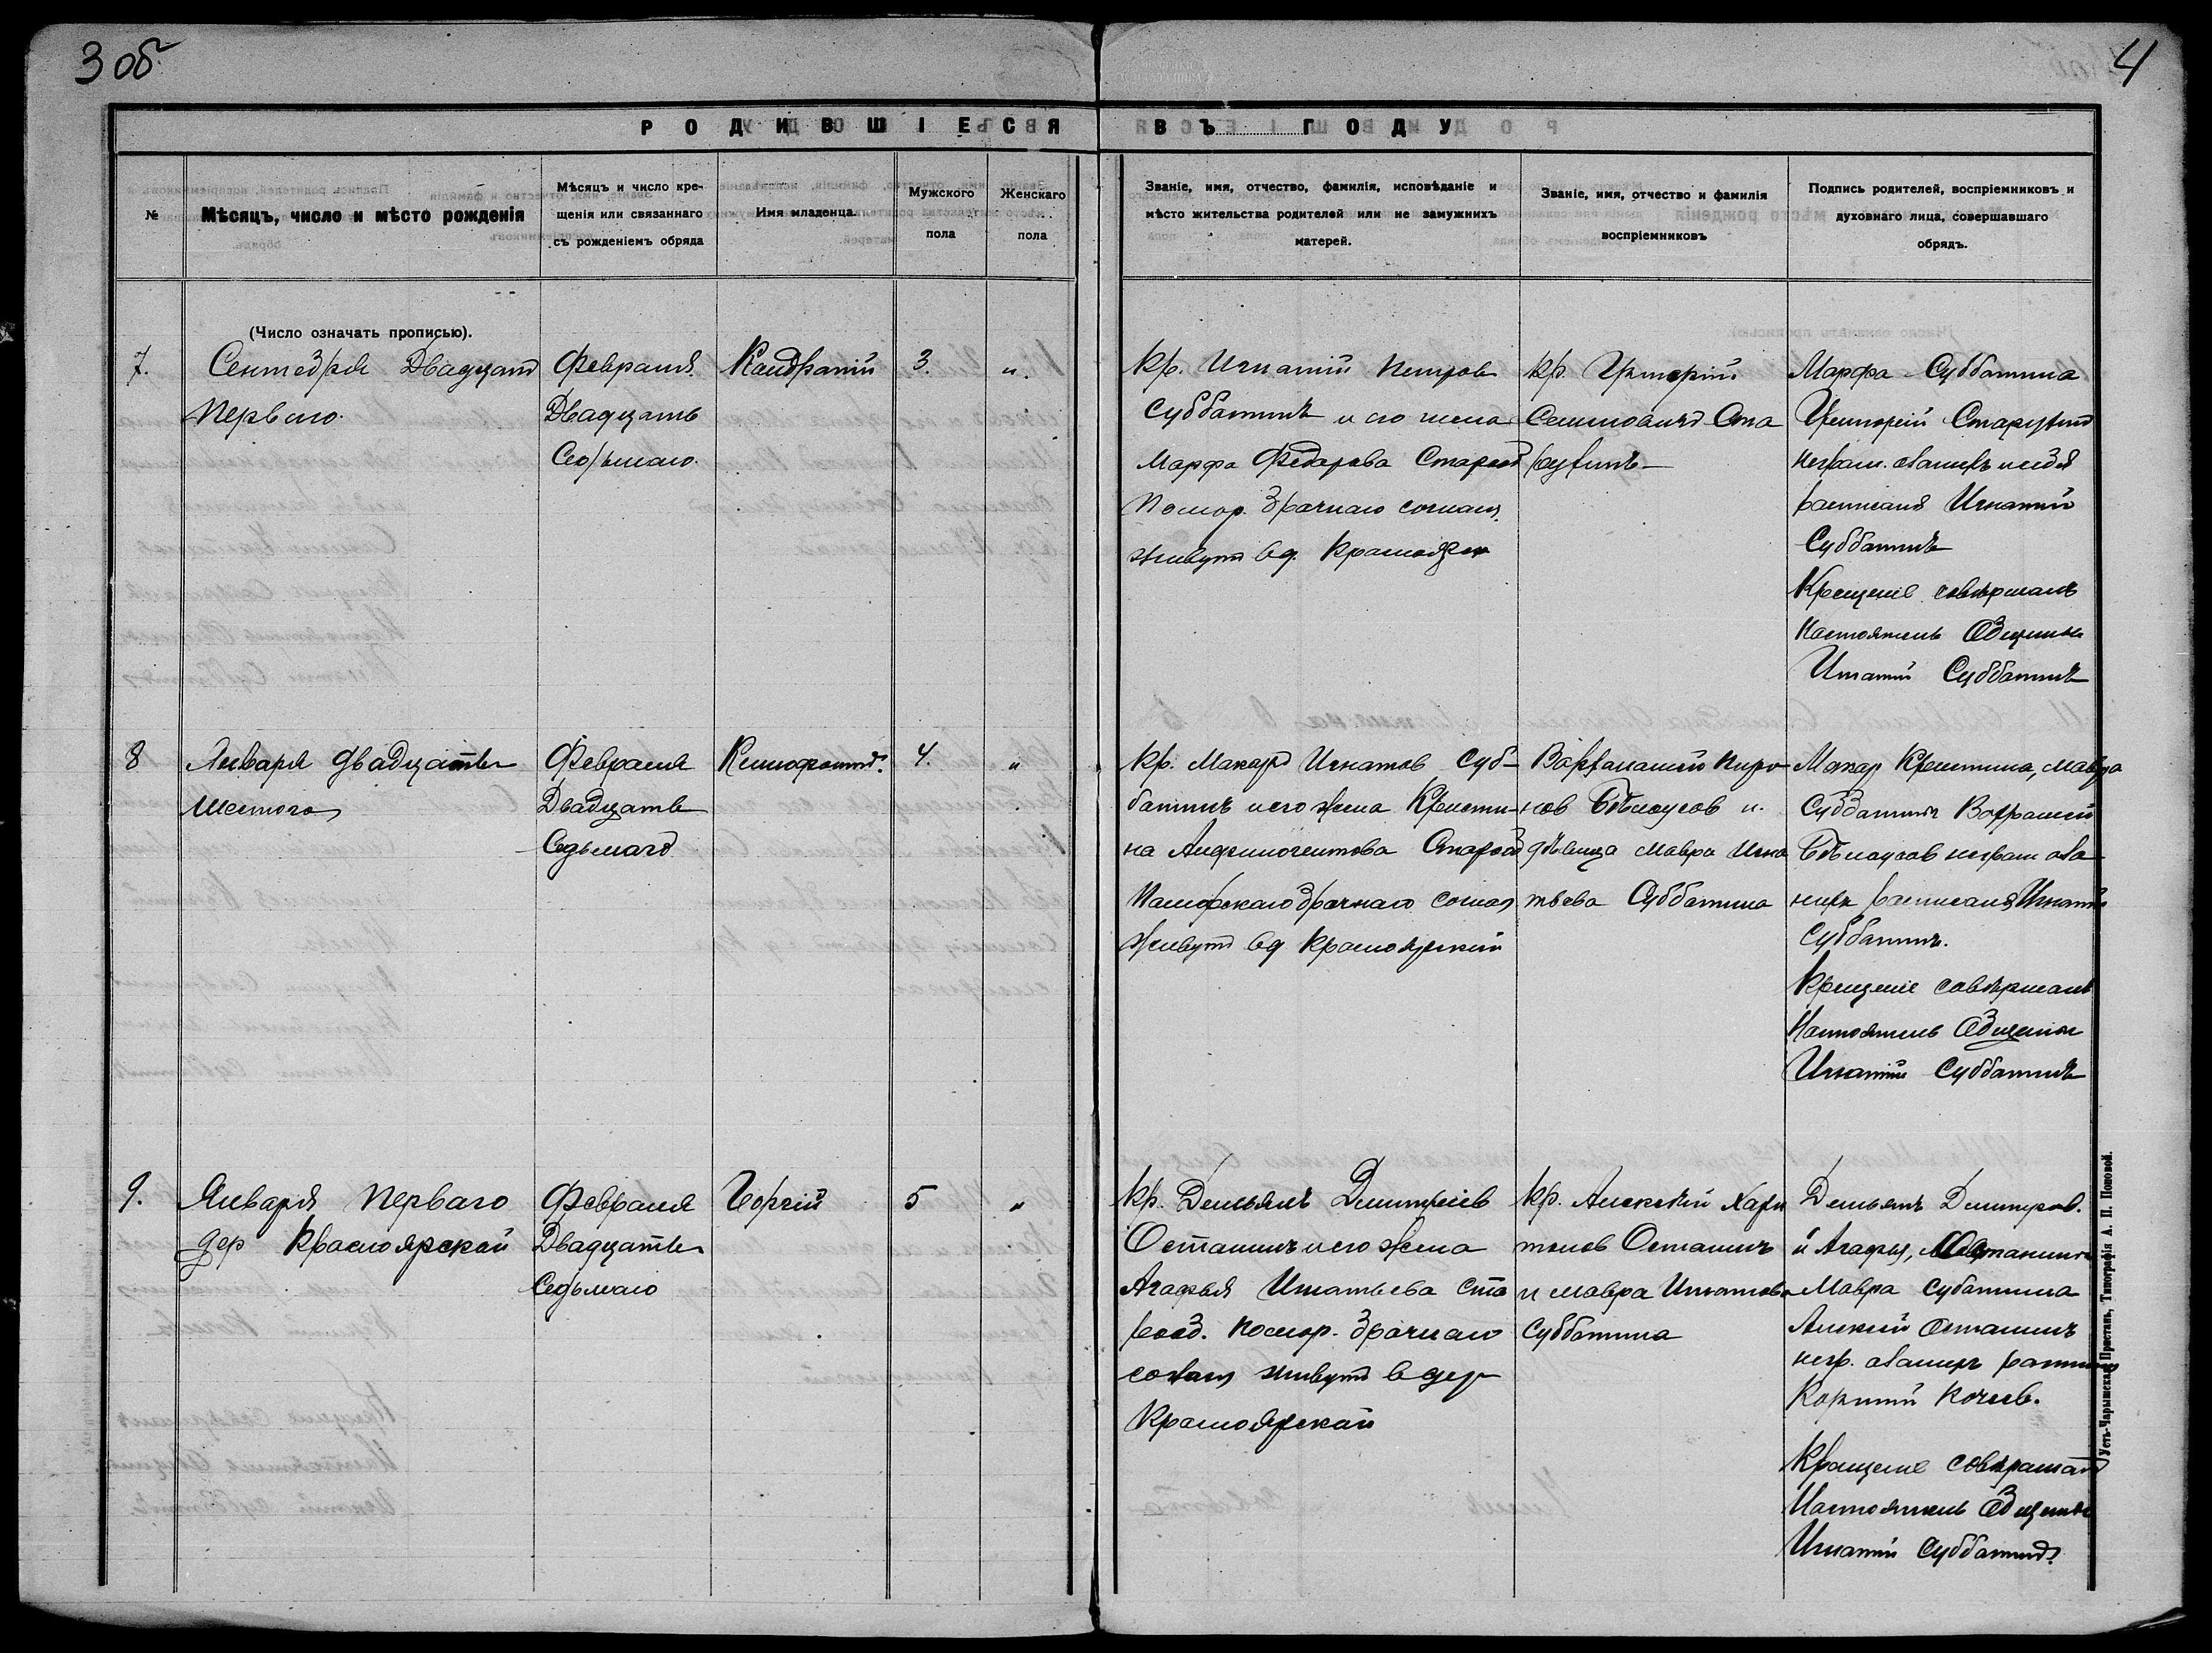 3 об
4
РОДИВШІЕСЯ ВЪ ГОДУ
№
Мѣсяцъ, число и мѣсто рожденія
Мѣсяцъ и число кре-
щенія или связаннаго
съ рожденіемъ обряда
Имя младенца.
Мужского
пола
Женскаго
пола
Званіе, имя, отчество, фамилія, исповѣданіе и
мѣсто жительства родителей или не замужнихъ
матерей.
Званіе, имя, отчество и фамилія
воспріемниковъ
Подпись родителей, воспріемниковъ и
духовнаго лица, совершавшаго
обрядъ.
(Число означать прописью).
7.
Сентебря Двадцат
Перваго.
Февраля.
Двадцать
Седьмаго.
Кандратій
3.
"
Кр. Игнатій Петров
Субботинъ и его жена
Марфа Федарова Старооб
Помор. брачнаго соглася.
живут в д. Краснояр
Кр. Григорій
Семиновичъ Ста
Марфа Субботина
Григорій
неграм. а за нихъ и себя
расписался Игнатій
Субботинъ
Крещеніе савершалъ
Настоятель Общины
Игнатій Субботинъ
8
Января двадцать
шестого
Февраля
Двадцать
Седьмаго
Ксинофонтъ.
4.
"
Кр. Макаръ Игнатов Суб-
ботинъ и его жена Кристи-
на Старооб
Паморскаго брачнаго соглас
живутъ в д Красноярский
Варфаламей
нов Бѣлоусов и
дѣвица Мавра Игна
тьева Субботина
Макар Крестина, Мавра
Субботины
Бѣлоусов неграм а за
нихъ расписался Игнатій
Субботинъ.
Крещеніе савершалъ
Настоятель Общины
Игнатій Субботинъ
9.
Января Перваго
дер Красноярской
Февраля
Двадцать
Седьмаго
Горгій
5
"
Кр. Демьянъ Дмитріев
Останинъ и его жена
Агафья Игнатьева Ста
рооб. помор. брачнаго
соглася живутъ в дер
Красноярскай
Кр. Алексѣй Хари
тонов Останинъ
и Мавра Игнатова
Субботина
Демьянъ Дмитров.
и Агафья, Останины
Мавра Суботина
Алексѣй Останинъ
негр. а за нихъ
Кочнев.
Крещеніе
Настоятель Общины
Игнатій Субботинъ.
Усть-Чарышская Пристань, Типографія А. П. Поповой.